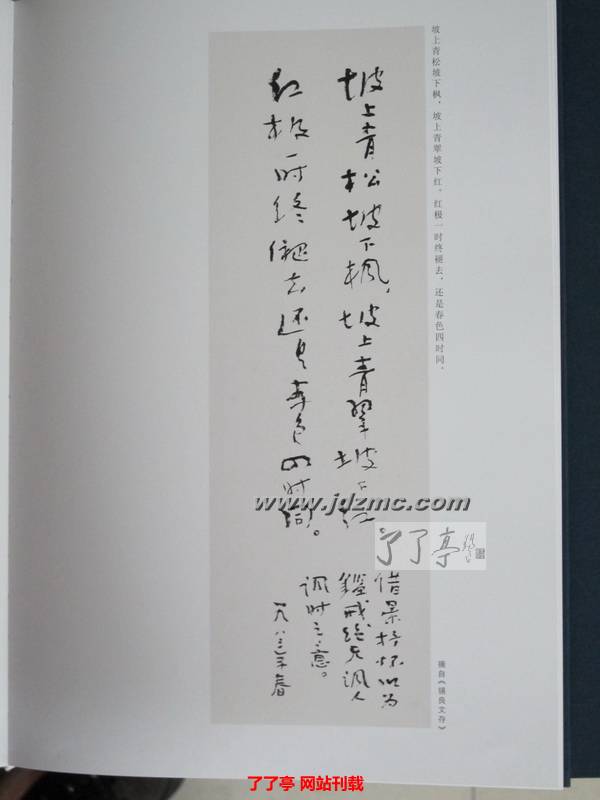 坡上青松坡下枫，坡上青翠坡下红，红极一时终褪去，还是春色四时同，
坡上青松坡下枫，坡上青翠坡下红
红极一时终褪去还是春色四时同。
借景抒怀以为
鑑戒绝无讽人
讽时之意。
一九八三年春
摘自《良文存》
www.jdzmc.com
了了亭
了了亭 网站刊载